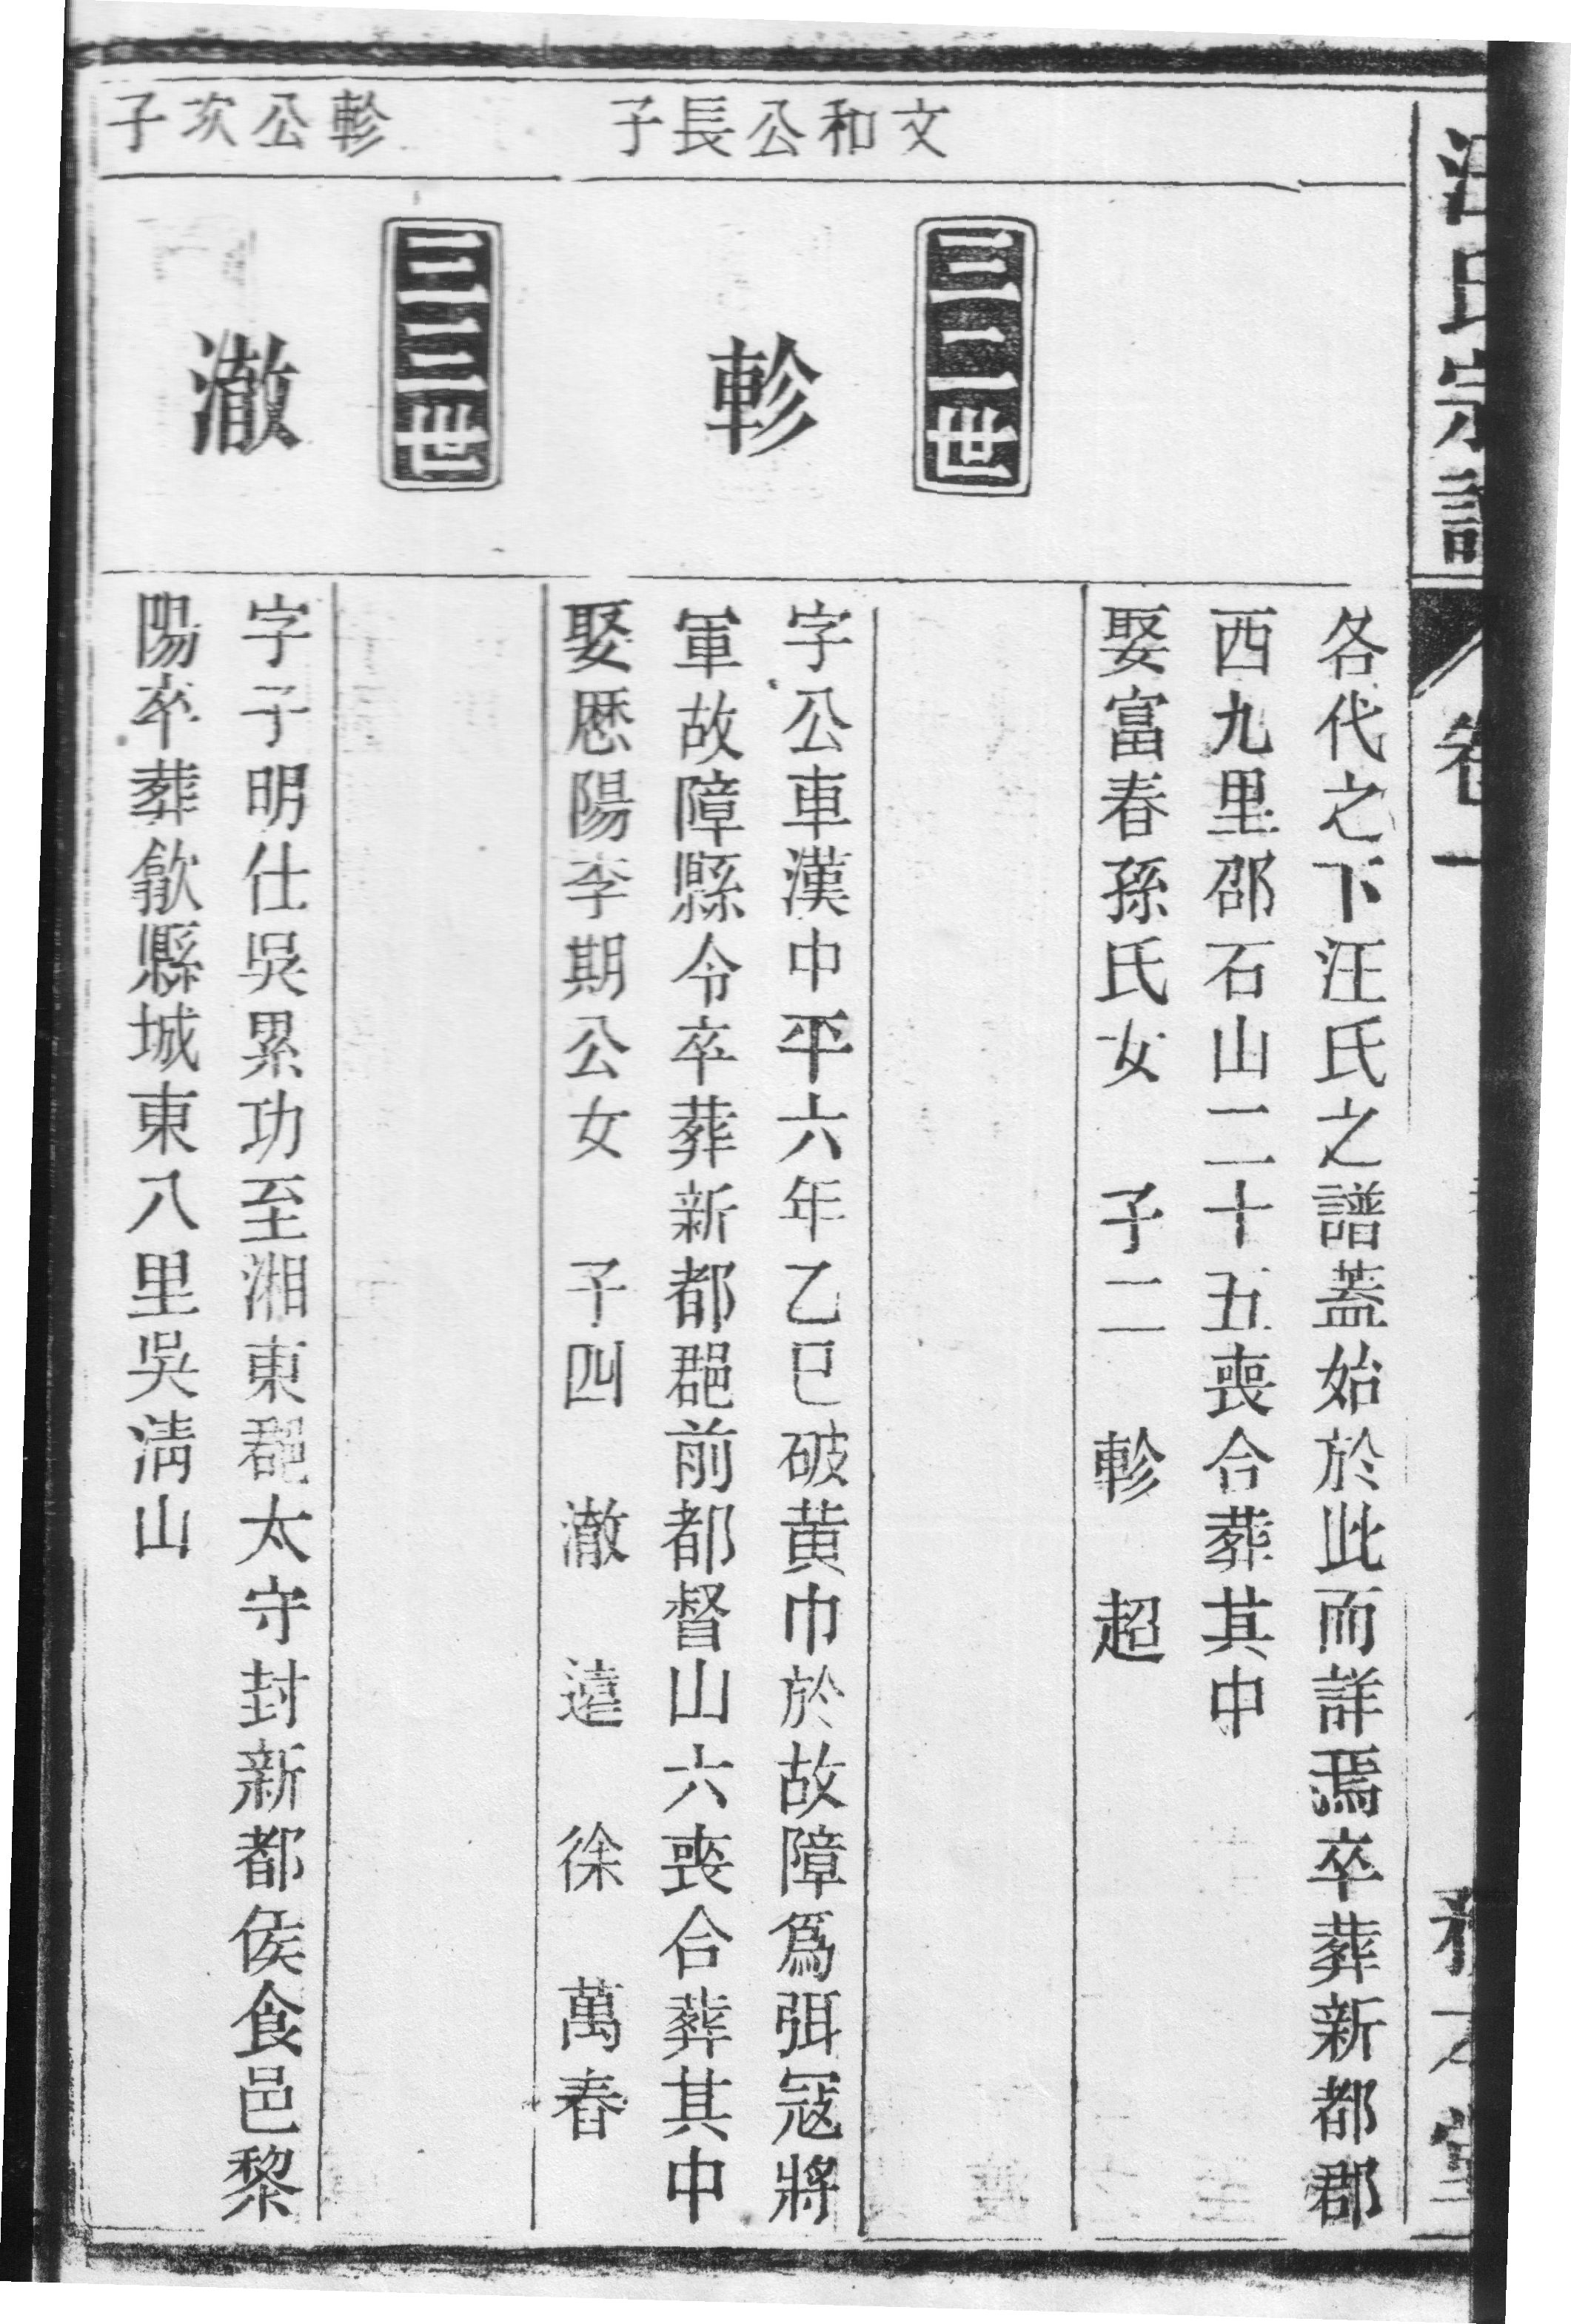 汪氏宗譜
卷一
各代之下汪氏之譜蓋始於此而詳焉卒葬新都郡
西九里邵石山二十五喪合葬其中
娶富春孫氏女　子二　軫　超
文和公長子
三二世
軫
字公車漢中平六年乙巳破黃巾於故障爲弭冦將
軍故障縣令卒葬新都郡前都督山六喪合葬其中
娶歷陽李期公女　子四　澈　遠　徐　萬春
軫公次子
三三世
澈
字子明仕吳累功至湘東郡太守封新都侯食邑黎
陽卒葬歙縣城東八里吳淸山